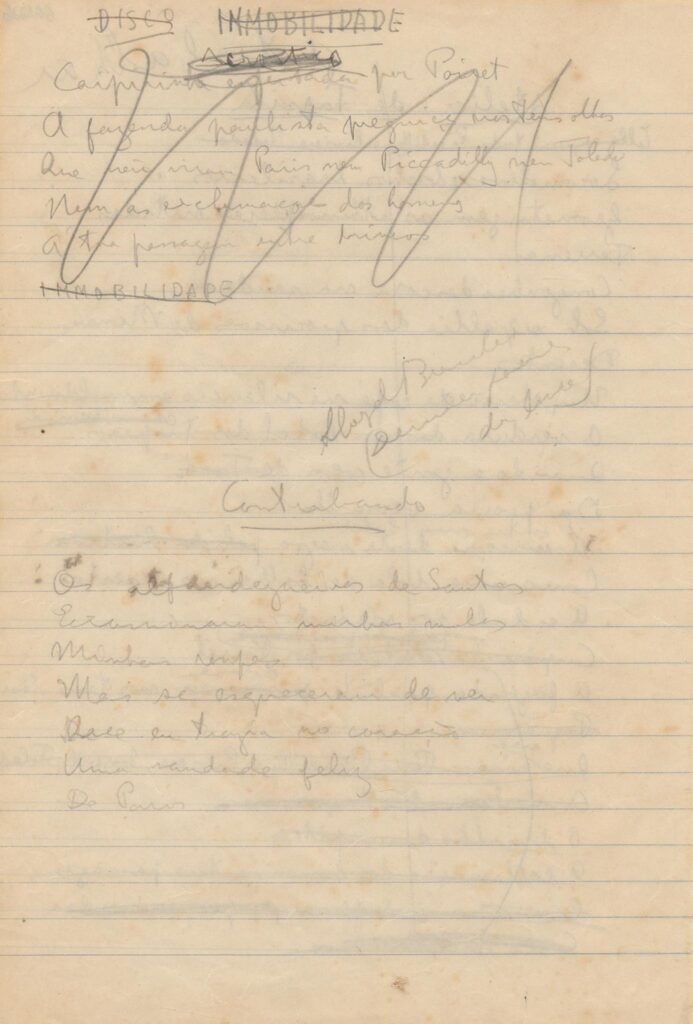 DISCO IMMOBILIDADE
Acrostico
Caipirinha enfeitada por Poiret
A fazenda paulista preguiça nos teus olhos
Que não viram Paris nem Piccadilly nem Toledo
Nem as exclamações dos homens
A tua passagem entre brincos
IMMOBILIDADE
Lloyd Brasileiro
Contrabando
Os alfandegueiros de Santos
Examinaram minhas malas
Minhas roupas
Mas se esqueceram de ver
Que eu trazia no coração
Uma saudade feliz
De Paris